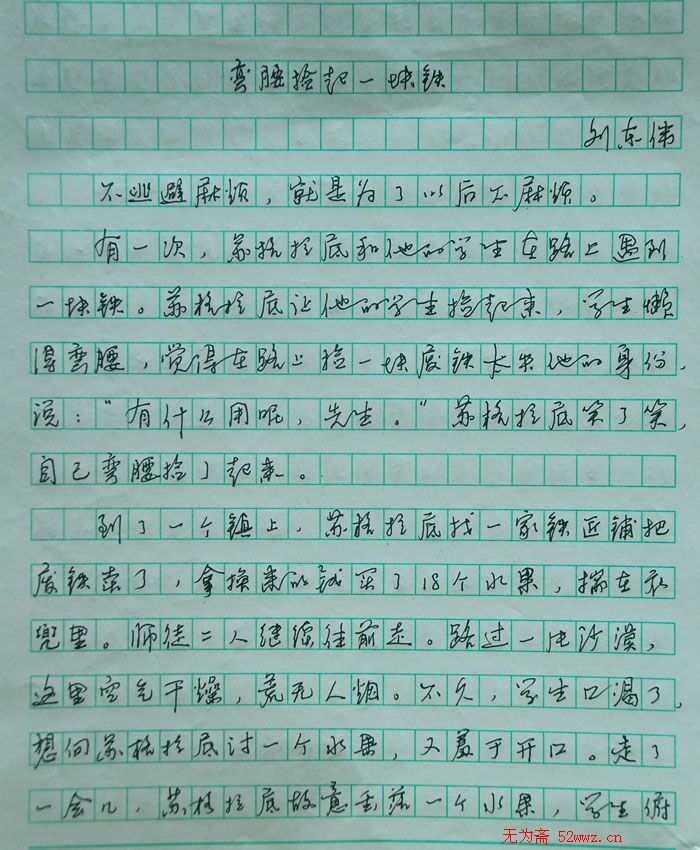 弯腰捡起一块铁
刘东伟
不逃避麻烦，就是为了以后不麻烦。
有一次，苏格拉底和他的学生在路上遇到
一块铁。苏格拉底让他的学生捡起来，学生懒
得弯腰，觉得在路上捡一块废铁太失他的身份，
说：“有什么用呢，先生。”苏格拉底笑了笑，
自己弯腰捡了起来。
到了一个镇上，苏格拉底找一家铁匠铺把
废铁卖了，拿换来的钱买了18个水果，揣在衣
兜里。师徒二人继续往前走。路过一片沙漠，
这里空气干燥，荒无人烟。不久，学生口渴了，
想向苏格拉底讨一个水果，又羞于开口。走了
一会儿，苏格拉底故意丢落一个水果，学生俯
无为斋 52wwz.cn